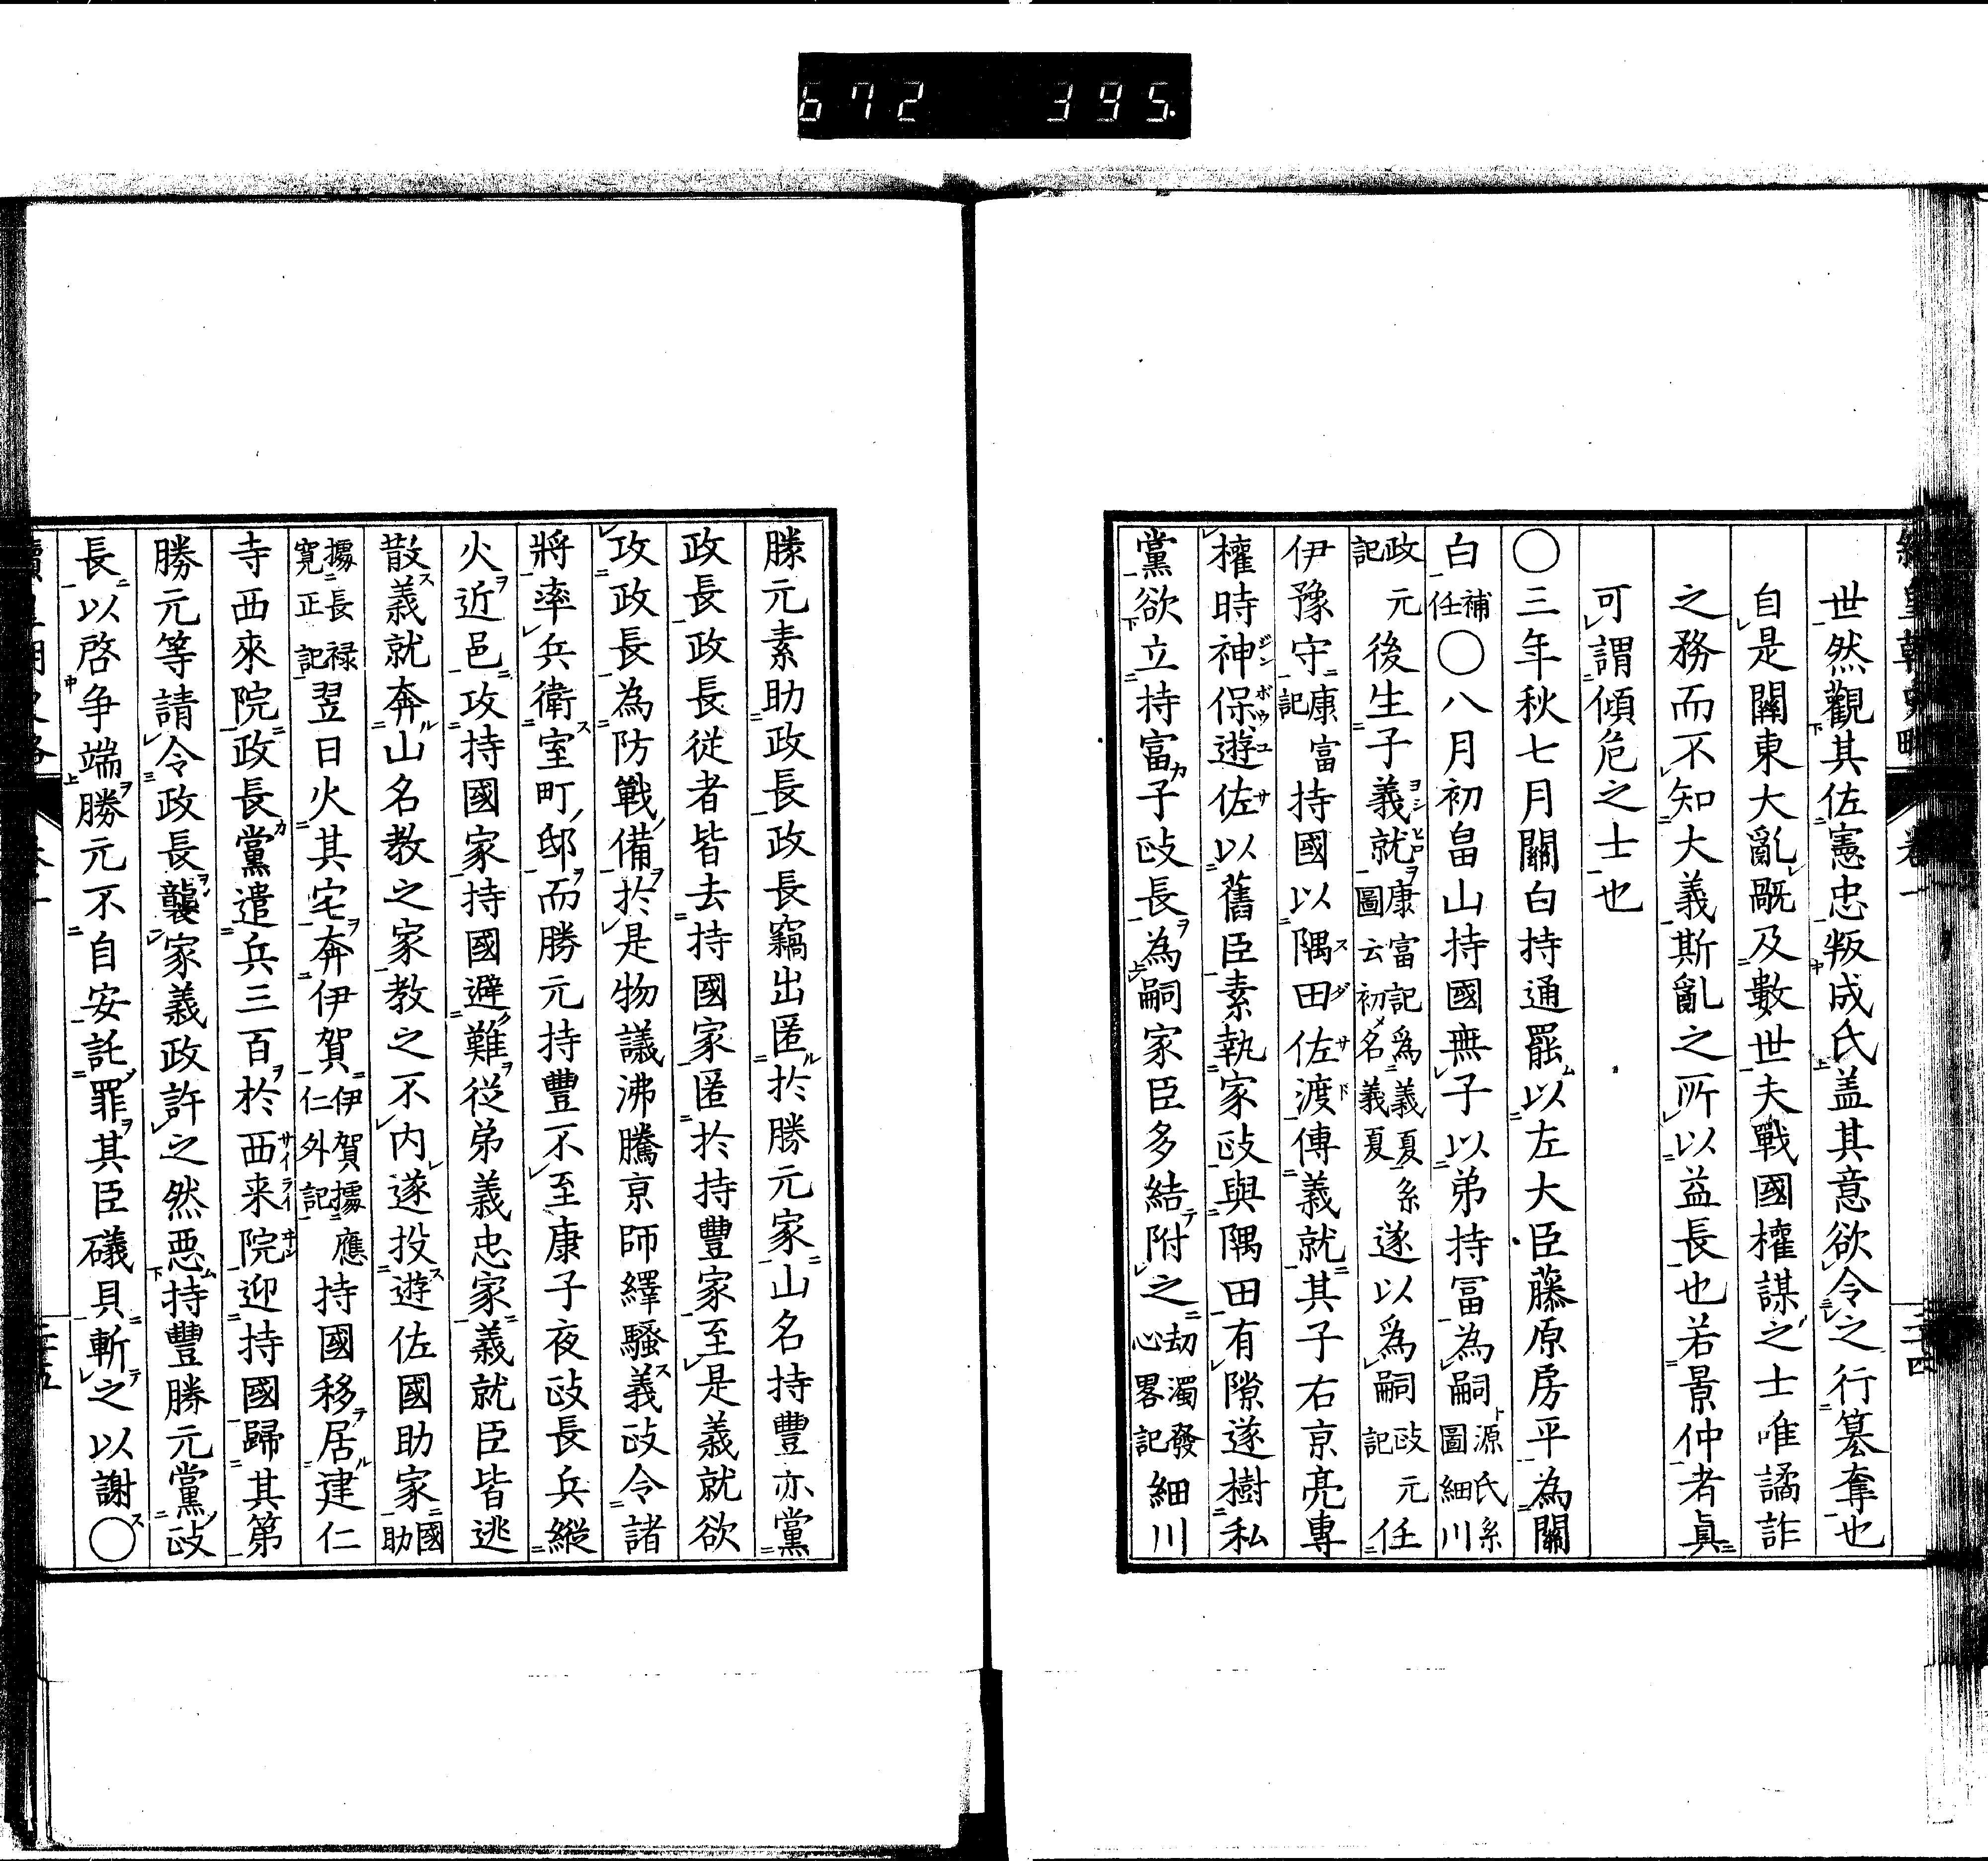 672 395.
續皇朝史略 卷一 二十四
世然觀其佐憲忠叛成氏盖其意欲令之行簒奪也
自是關東大亂厩及數世夫戰國權謀之士唯譎詐
之務而不知大義斯亂之所以益長也若景仲者眞
可謂傾危之士也
〇三年秋七月關白持通罷以左大臣藤原房平為關
白補任〇八月初畠山持國無子以弟持冨為嗣源氏系圖細川
政元記後生子義就康富記為義夏系圖云初名義夏遂以爲嗣政元任記
伊豫守康富記持國以隅田佐渡傳義就其子右亰亮專
權時神保遊佐以舊臣素執家政與隅田有隙遂樹私
黨欲立持富子政長為嗣家臣多結附之劫濁發心畧記細川
勝元素助政長政長竊出匿於勝元家山名持豐亦黨
政長政長從者皆去持國家匿於持豐家至是義就欲
攻政長為防戰備於是物議沸騰亰師繹騷義政令諸
將率兵衛室町邸而勝元持豐不至康子夜政長兵縱
火近邑攻持國家持國避難從弟義忠家義就臣皆逃
散義就奔山名教之家教之不内遂投遊佐國助家國助
據長禄寛正記翌日火其宅奔伊賀伊賀據應仁外記持國移居建仁
寺西來院政長黨遣兵三百於西来院迎持國歸其第
勝元等請令政長襲家義政許之然惡持豐勝元黨政
長以啓争端勝元不自安託罪其臣礒貝斬之以謝〇